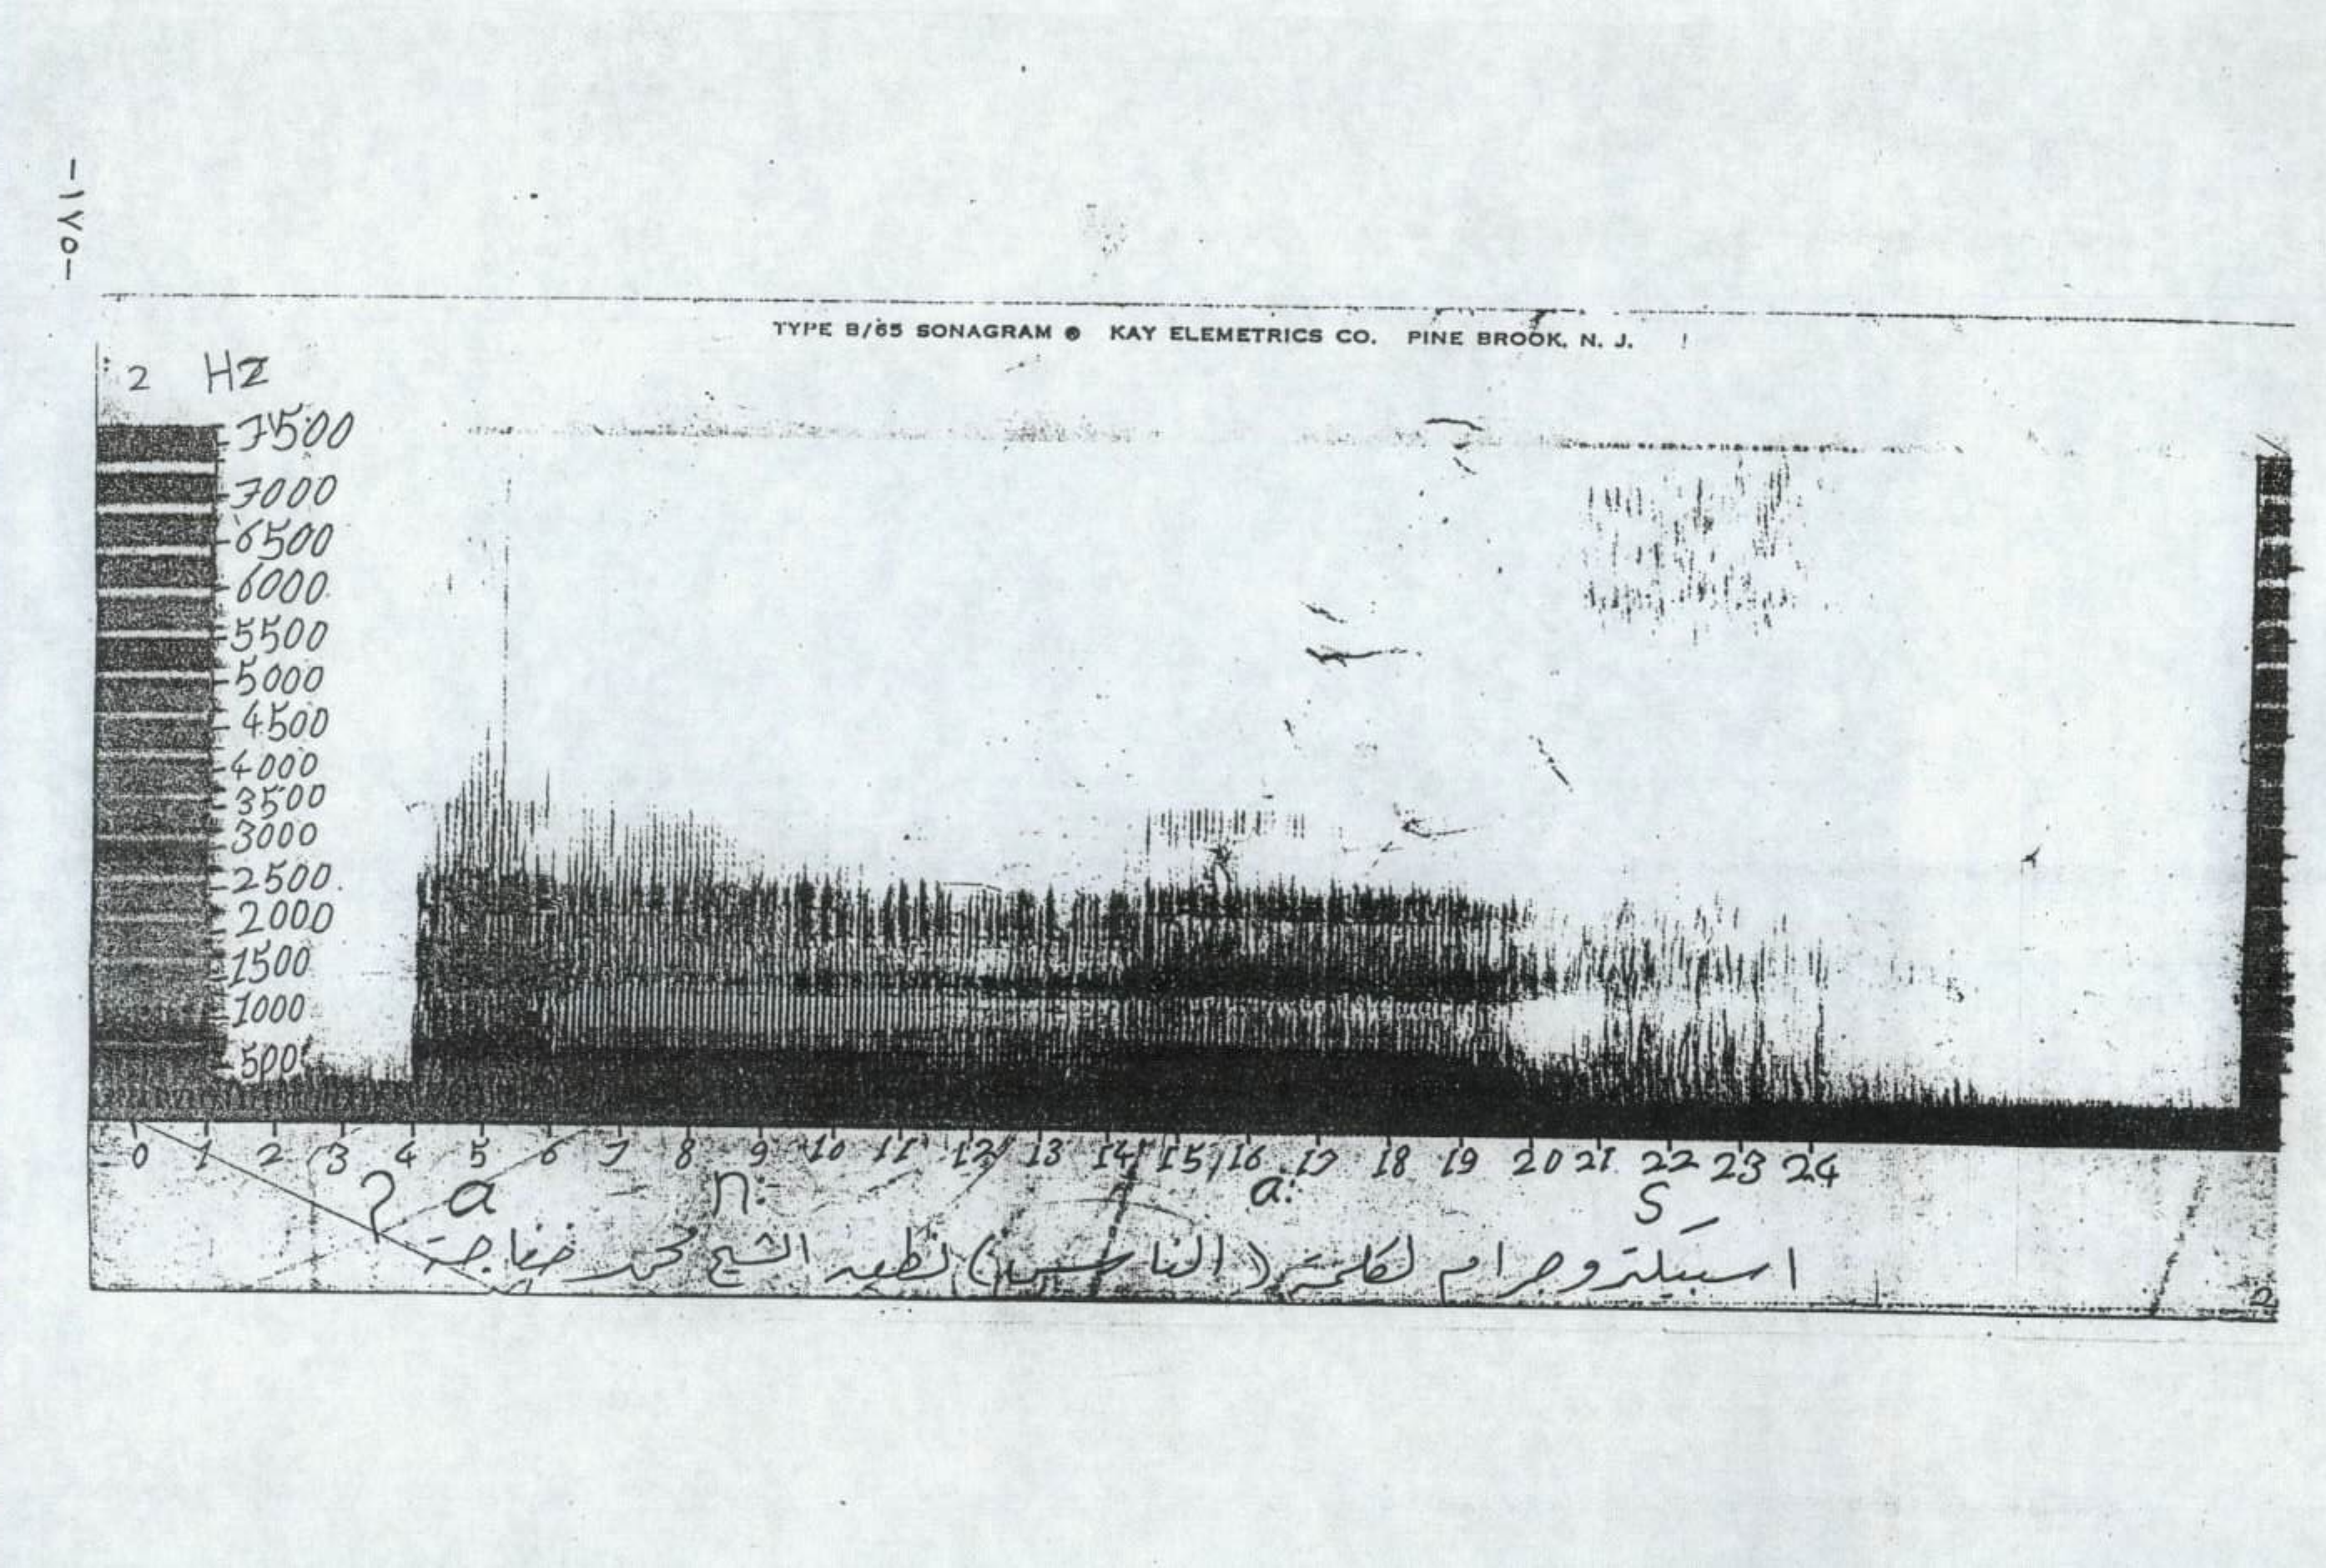 -١٧٥-
TYPE B/65 SONAGRAM ® KAY ELEMETRICS CO. PINE BROOK, N. J.
2 Hz
7500
7000
6500
6000
5500
5000
4500
4000
3500
3000
2500
2000
1500
1000
500
0 1 2 3 4 5 6 7 8 9 10 11 12 13 14 15 16 17 18 19 20 21 22 23 24
ʔ a n: a: s
اسبيكتروجرام لكلمة (الناس) نطق الشيخ محمد خفاجة